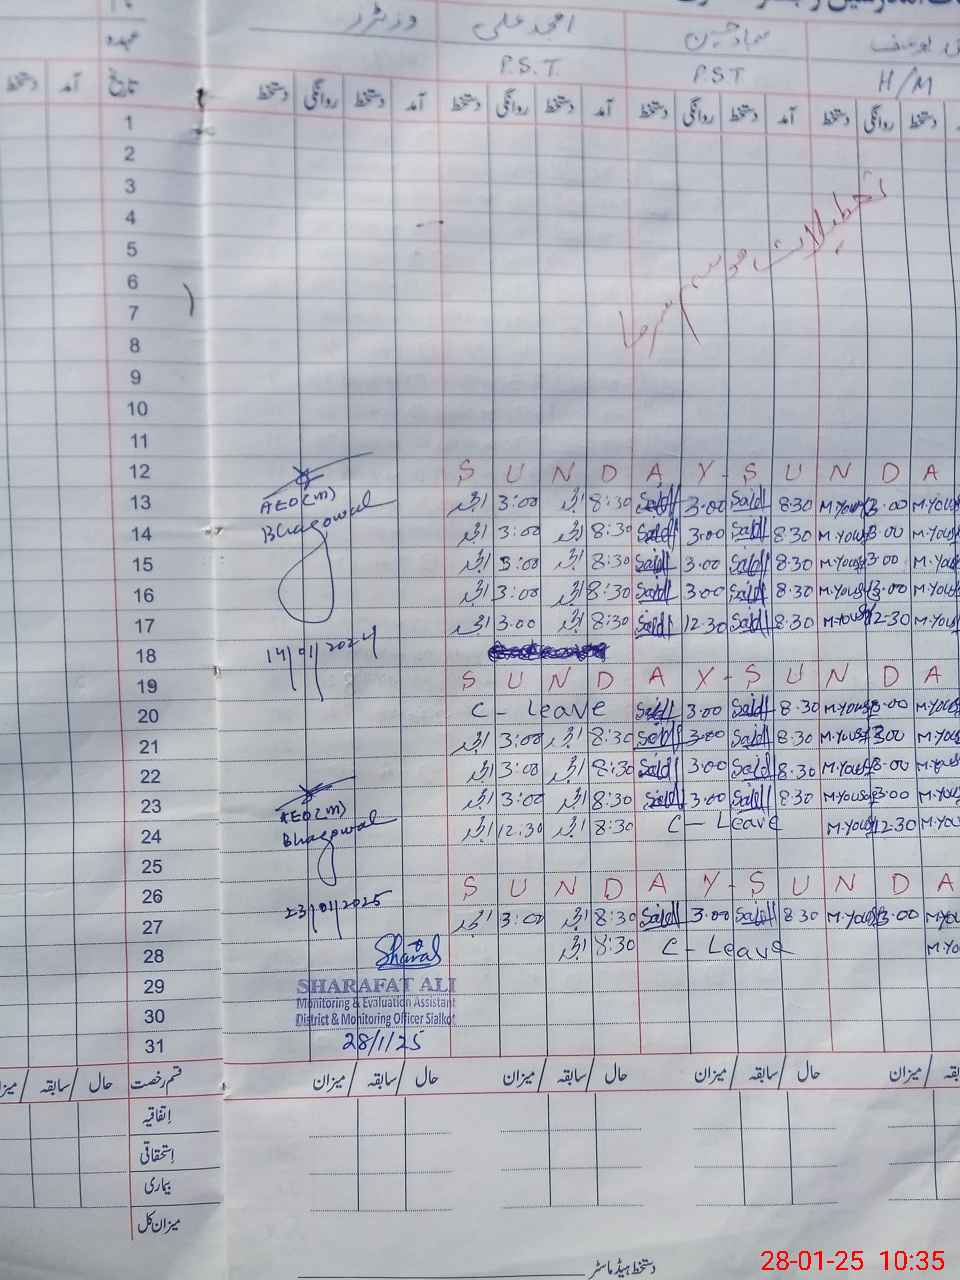 وزیٹرز امجد علی سجاد حسین
عہدہ P.S.T. PST H/M
دستخط آمد تاریخ دستخط روانگی دستخط آمد دستخط روانگی دستخط آمد دستخط روانگی دستخط آمد دستخط روانگی دستخط
1
2
3
4
5
6
7
8
9
10
11
تعطیلات موسم سرما
12 S U N D A Y - S U N D A
13 امجد 3:00 امجد 8:30 Sajd 3.00 Sajd 8.30 M.Yousf 3.00 M.Yous
14 امجد 3:00 امجد 8:30 Sajd 3.00 Sajd 8.30 M.Yousf 3.00 M.Yous
15 امجد 3:00 امجد 8:30 Sajd 3.00 Sajd 8.30 M.Yousf 3.00 M.Yous
16 امجد 3:00 امجد 8:30 Sajd 3.00 Sajd 8.30 M.Yousf 3.00 M.Yous
17 امجد 3.00 امجد 8:30 Sajd 12.30 Sajd 8.30 M.Yousf 12.30 M.Yous
AEO(m)
Bhagowal
14/01/2024
18
19 S U N D A Y - S U N D A
20 C - Leave Sajd 3.00 Sajd 8.30 M.Yousf 3.00 M.Yous
21 امجد 3:00 امجد 8:30 Sajd 3.00 Sajd 8.30 M.Yousf 3.00 M.Yous
22 امجد 3:00 امجد 8:30 Sajd 3.00 Sajd 8.30 M.Yousf 3.00 M.Yous
23 امجد 3:00 امجد 8:30 Sajd 3.00 Sajd 8.30 M.Yousf 3.00 M.Yous
24 امجد 12.30 امجد 8:30 C - Leave M.Yousf 12.30 M.Yous
AEO(m)
Bhagowal
23/01/2025
25
26 S U N D A Y - S U N D A
27 امجد 3:00 امجد 8:30 Sajd 3.00 Sajd 8.30 M.Yousf 3.00 M.You
28 امجد 8:30 C - Leave M.Yo
29
30
31
Sharaf
SHARAFAT ALI
Monitoring & Evaluation Assistant
District & Monitoring Officer Sialkot
28/1/25
حال / سابقہ / میزان قسم رخصت حال / سابقہ / میزان حال / سابقہ / میزان حال / سابقہ / میزان میزان
اتفاقیہ
استحقاقی
بیماری
میزان کل
دستخط ہیڈ ماسٹر
28-01-25 10:35